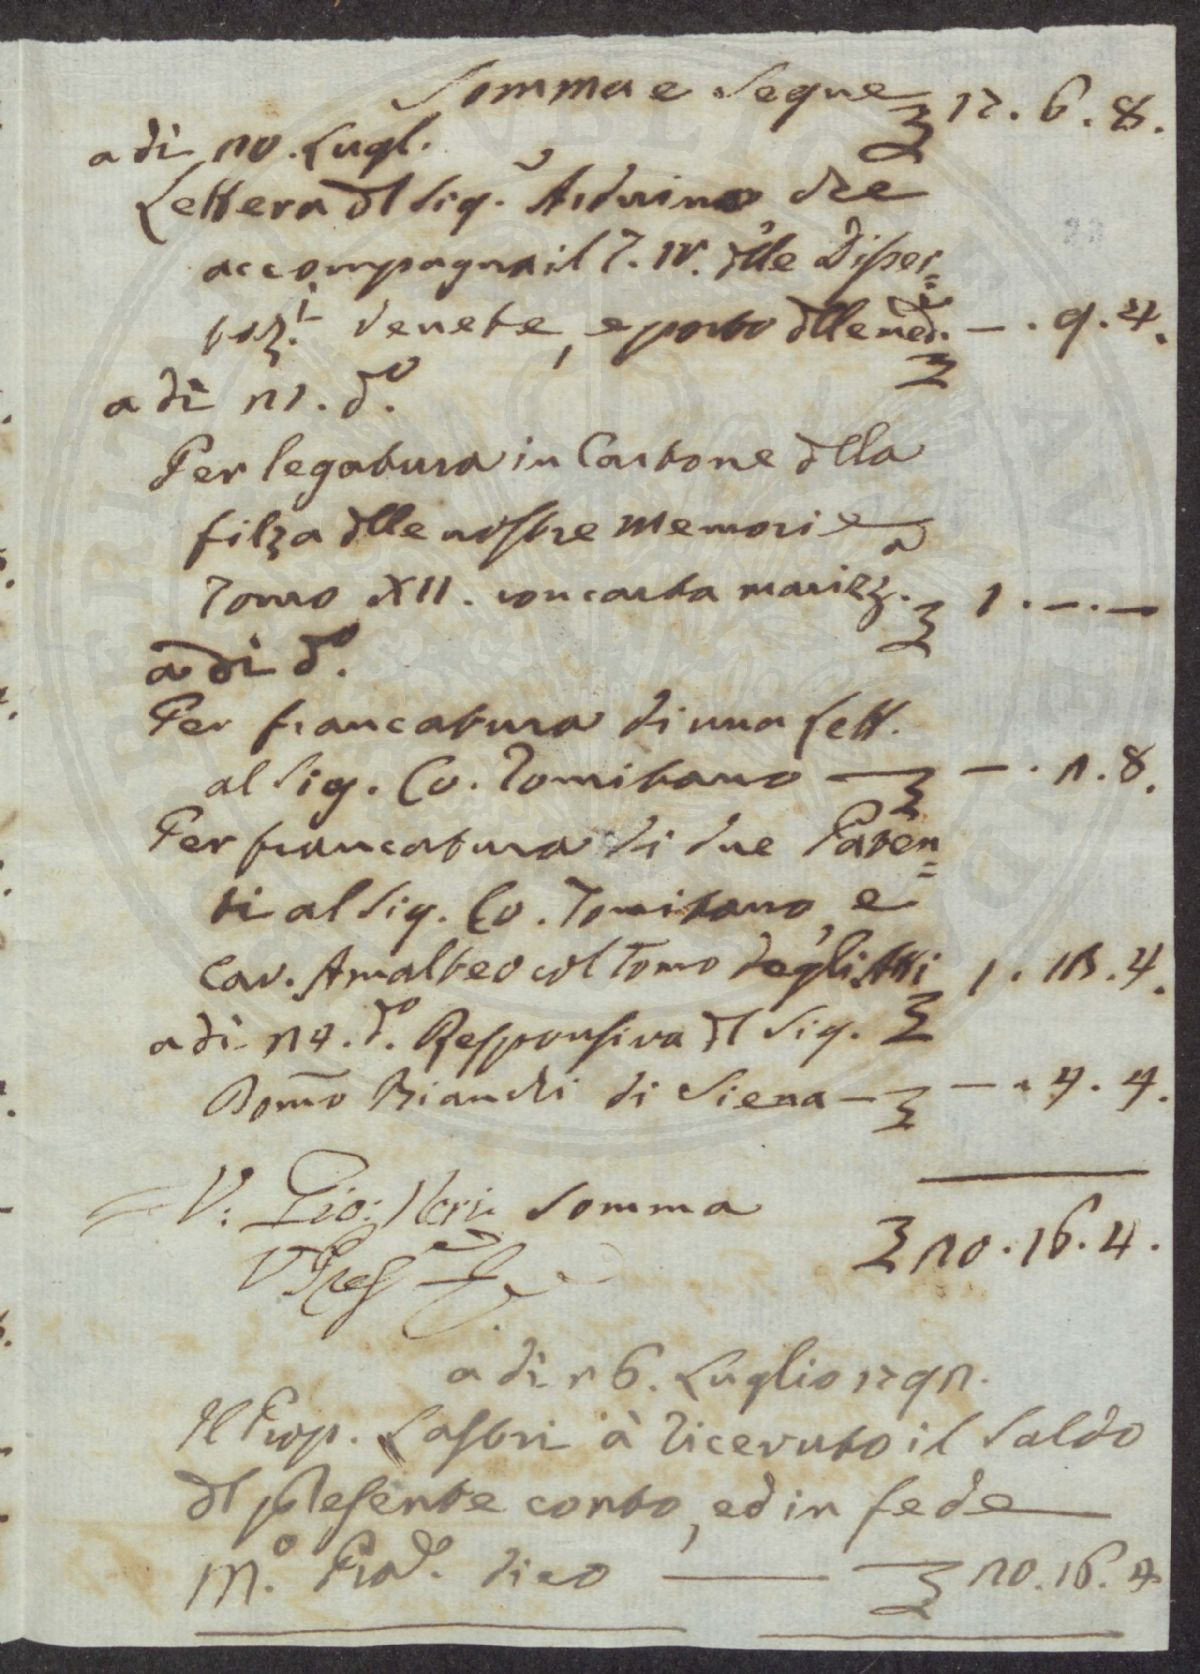 Somma e Segue £ 17. 6. 8.
a dì 10. Lugl.
Lettera dl Sig. Arduino, che
accompagna il T. IV. dlle Disser=
taz.i Venete, e porto dlle med.e £ —. 9. 4.
a dì 11. do.
Per legatura in Cartone dlla
filza dlle nostre Memorie
Tomo XII. con carta marizz.a £ 1. —. —
a dì do.
Per francatura di una Lett.
al Sig. Co. Tomitano — £ —. 1. 8.
Per francatura di due Paten=
ti al Sig. Co. Tomitano, e
Cav. Amalteo col Tomo degli Atti £ 1. 13. 4.
a dì 14. do. Responsiva dl Sig. £
Domo Bianchi di Siena — £ —. 4. 4.
V: Gio: Neri Somma £ 20. 16. 4.
V Pres
a dì 16. Luglio 1791.
Il Prop. Lastri à ricevuto il Saldo
dl presente conto, ed in fede
M.o Prod. dico — £ 20. 16. 4